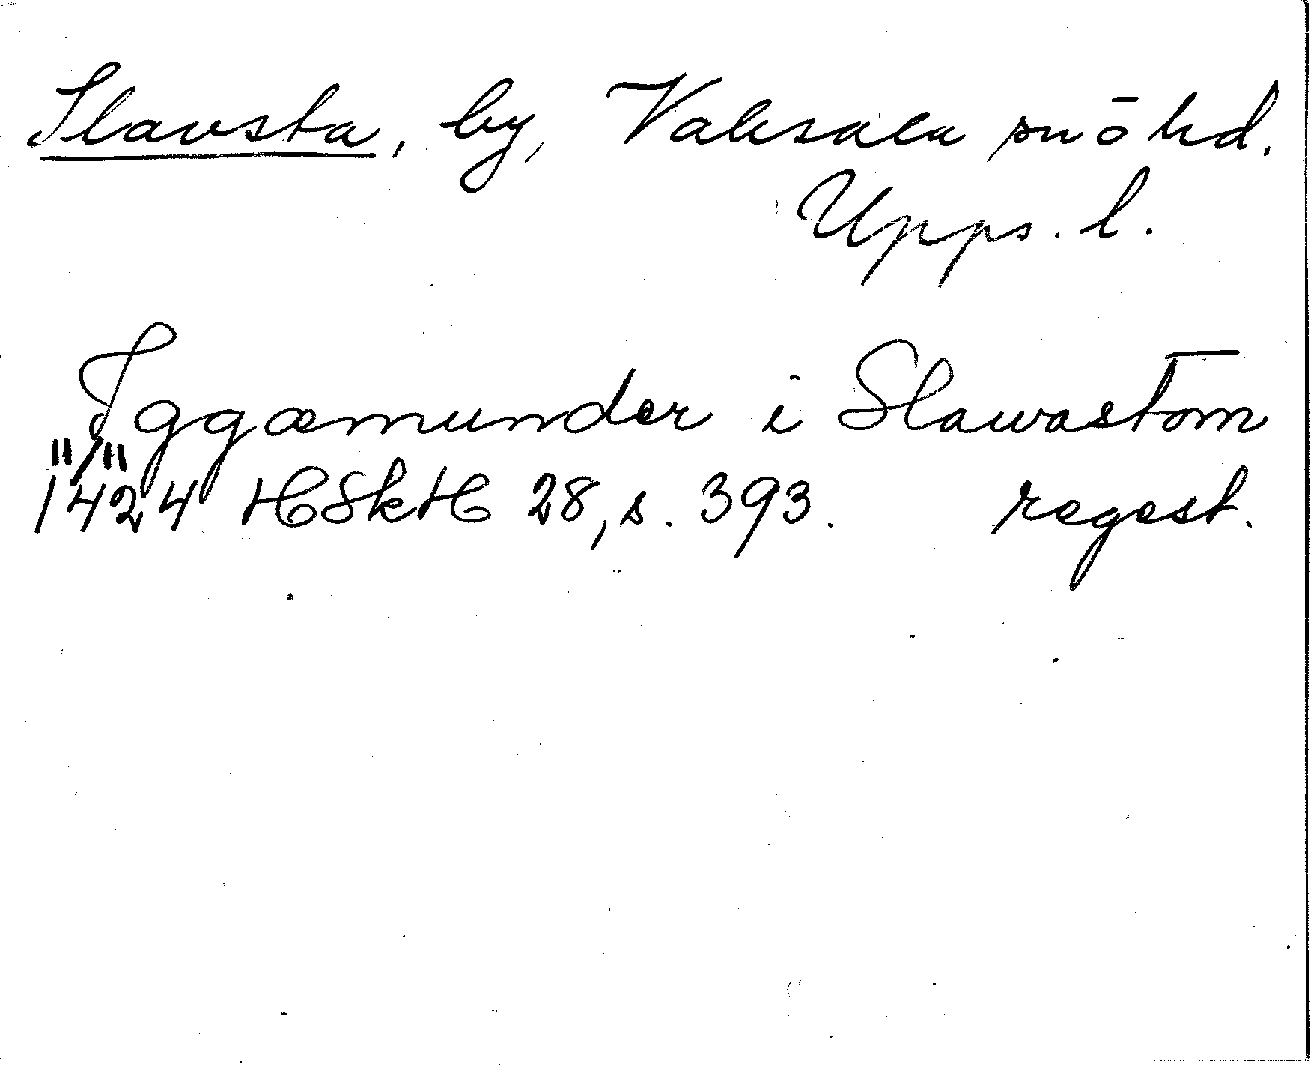 Slavsta, by, Vaksala sn ō hd.
Upps. l.
Iggæmunder i Slawastom
11/11
1424 HSkH 28, s. 393. regest.